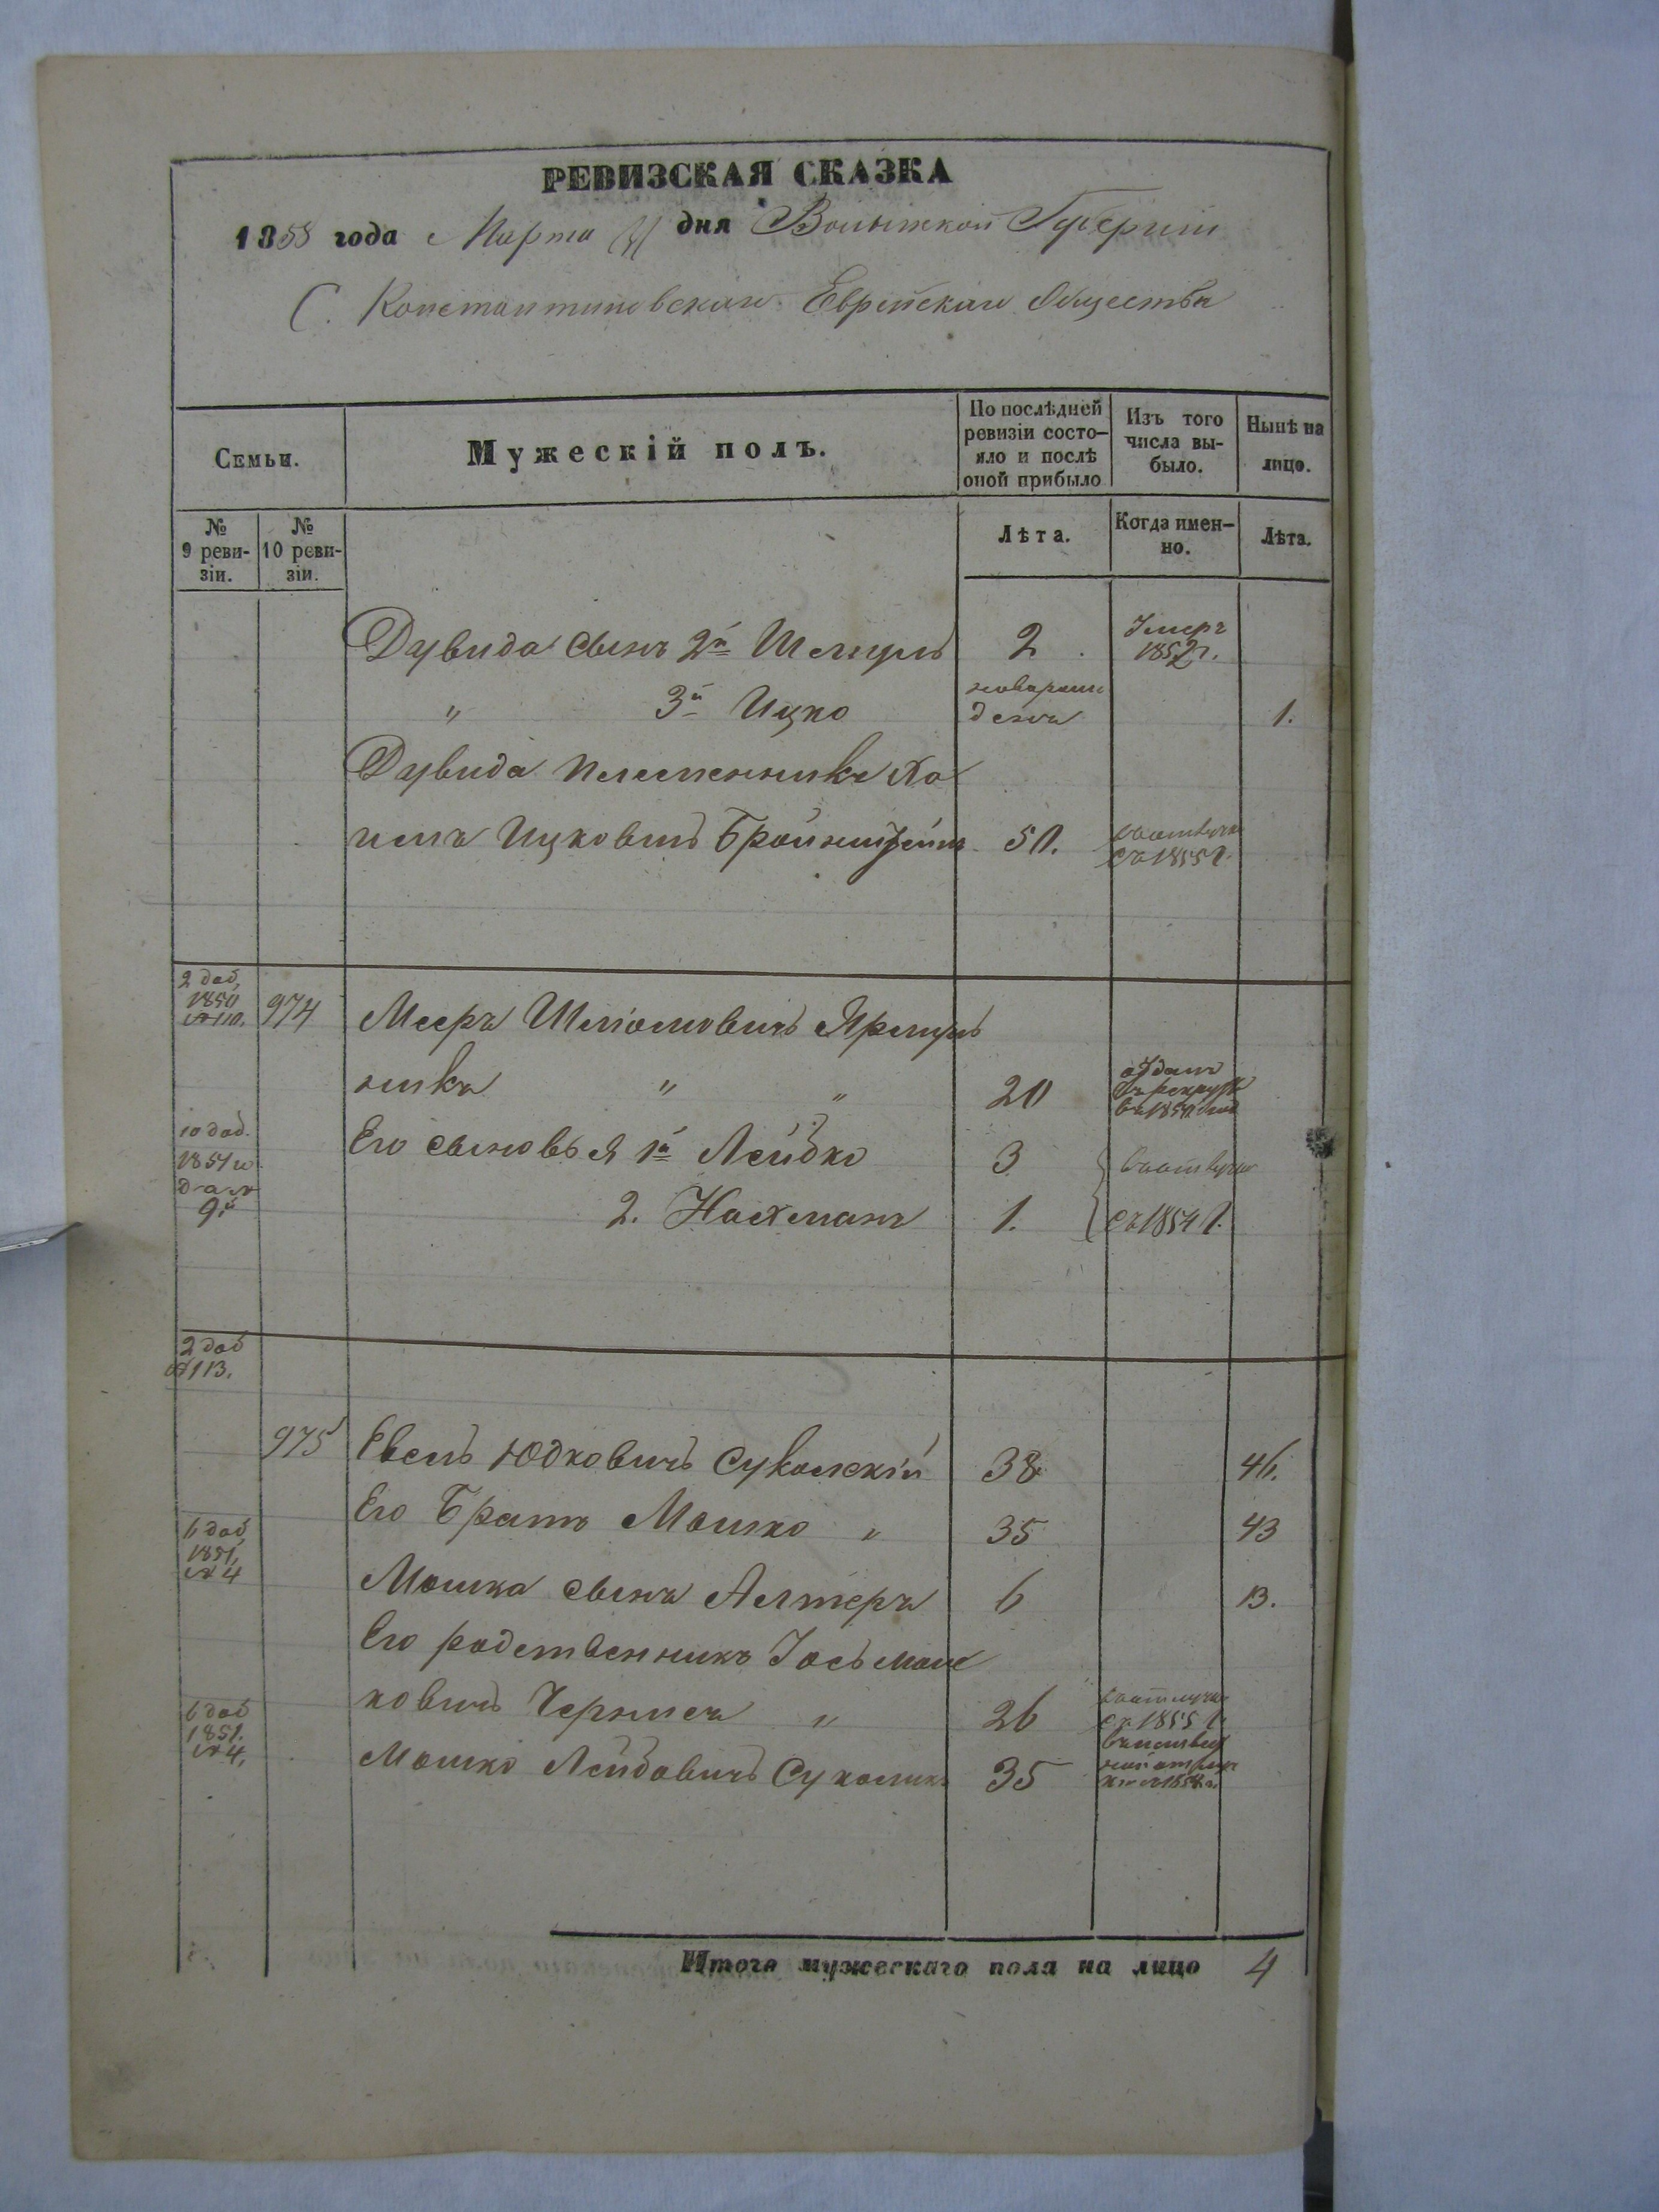 РЕВИЗСКАЯ СКАЗКА
1858 года Марта дня Волынской Губерніи
С. Константиновскаго Еврейскаго Общества
Семьи.
Мужескій полъ.
По послѣдней ревизіи состояло и послѣ оной прибыло
Изъ того числа выбыло.
Нынѣ на лицо.
№ 9 ревизіи.
№ 10 ревизіи.
Лѣта.
Когда именно.
Лѣта.
Дувида сынъ 2й Шмуль 2 Умеръ 1852 г.
" 3й Ицко новорожденъ 1.
Дувида племенникъ Ха
имъ Ицковичъ Бронштейнъ 51. въ отлучкѣ съ 1855 г.
2 доб. 1850 № 110. 974 Мееръ Шліомовичъ Ярмуль
никъ " " 20 отданъ въ рекруты въ 1850 году
10 доб. 1851 и
Его сыновья 1й Лейбко 3 въ отлучкѣ
9й 2. Нахманъ 1. съ 1854 г.
2 доб № 113.
975 Евель Юдковичъ 38 46.
Его Братъ Мошко " 35 43
6 доб. 1851, № 4
Мошка сынъ Алтеръ 6 13.
Его родственникъ Іось Мош
ковичъ " 26 въ отлучкѣ съ 1855 г.
6 доб 1851. № 4.
Мошко Лейбовичъ 35
Итого мужескаго пола на лицо 4